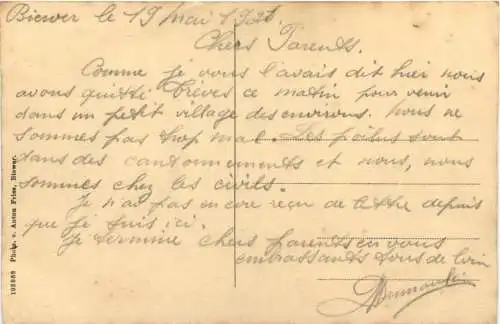 Biewer le 19 mai 1921
Chers Parents.
Comme je vous l'avais dit hier nous
avons quitté Trèves ce matin pour venir
dans un petit village des environs. Nous ne
sommes pas trop mal. Les poilus sont
dans des cantonnements et nous, nous
sommes chez les civils.
Je n'ai pas encore reçu de lettre depuis
que je suis ici.
Je termine chers parents en vous
embrassants tous de loin
102869 Photo. v. Anton Fries, Biewer.